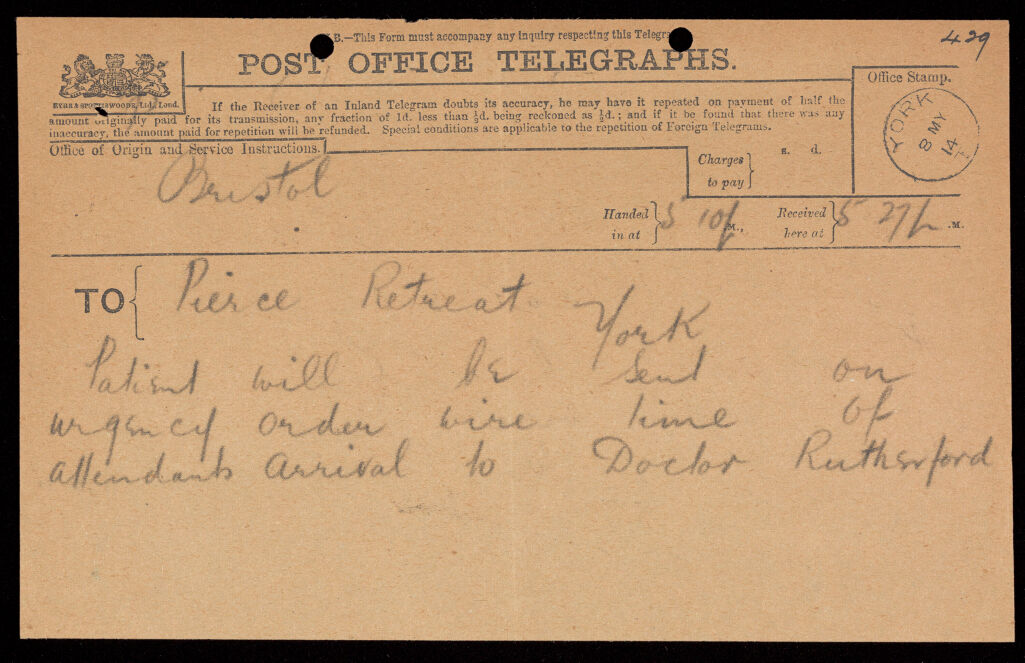 429
B.—This Form must accompany any inquiry respecting this Telegra
POST OFFICE TELEGRAPHS.
EYRE & SPOTTISWOODE, Ltd., Lond.
Office Stamp.
YORK
8 MY
14
If the Receiver of an Inland Telegram doubts its accuracy, he may have it repeated on payment of half the
amount originally paid for its transmission, any fraction of 1d. less than ½d. being reckoned as ½d.; and if it be found that there was any
inaccuracy, the amount paid for repetition will be refunded. Special conditions are applicable to the repetition of Foreign Telegrams.
Office of Origin and Service Instructions.
Charges to pay } s. d.
Bristol
Handed in at } 5 10 M., Received here at } 5 27 .M.
TO { Pierce Retreat York
Patient will be sent on
urgency order wire time of
attendants arrival to Doctor Rutherford